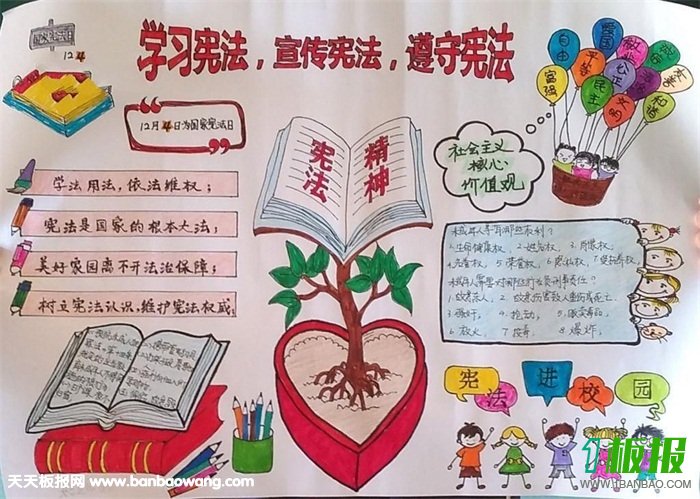 学习宪法，宣传宪法，遵守宪法
国家宪法日
12.4
12月4日为国家宪法日
学法用法，依法维权；
宪法是国家的根本大法；
美好家园离不开法治保障；
树立宪法认识，维护宪法权威；
宪法
精神
社会主义
核心
价值观
自由
平等
爱国
敬业
诚信
富强
民主
公正
法治
友善
文明
和谐
未成年人享有那些权利？
1.生命健康权， 2.姓名权， 3.肖像权，
4.名誉权， 5.荣誉权， 6.隐私权，
2.故意伤害致人重伤或死亡，
3.强奸， 4.抢劫， 5.贩卖毒品，
6.放火， 7.投毒， 8.爆炸。
宪法进校园
天天板报网 www.banbaowang.com
板报
WWW.TTBANBAO.COM